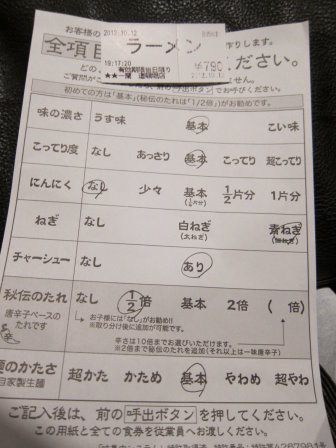 お客様の
2012.10.12
ラーメン
¥790
全項目
作りします。
ください。
19:17:20
有効期限当日限り
★★一蘭 道頓堀店
前の呼出ボタンでお呼びください。
初めての方は「基本」(秘伝のたれは「1/2倍」)がお勧めです。
味の濃さ うす味 基本 こい味
こってり度 なし あっさり 基本 こってり 超こってり
にんにく なし 少々 基本 1/2片分 1片分
(1/4片分)
ねぎ なし 白ねぎ 青ねぎ
(太ねぎ)
チャーシュー なし あり
秘伝のたれ なし 1/2倍 基本 2倍 ( 倍)
唐辛子ベースの
たれです
辛
お子様には「なし」がお勧め!!
※取り分け後に追加が可能です。
辛さは10倍までお選びいただけます。
※2倍まで秘伝のたれを追加(それ以上は一味唐辛子)
麺のかたさ 超かた かため 基本 やわめ 超やわ
自家製生麺
ご記入後は、前の呼出ボタンを押してください。
この用紙と全ての食券を従業員へお渡しください。